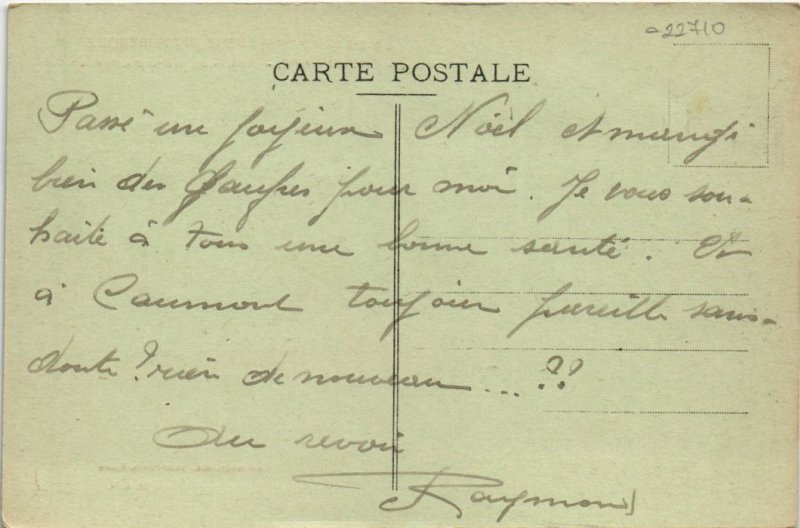 a22710
CARTE POSTALE
Passé un joyeux Noël et mangé
bien des gaufres pour moi. Je vous sou-
haite à tous une bonne santé. Et
à Caumont toujour pareille sans-
doute ? rien de nouveau ... ??
Au revoir
Raymond